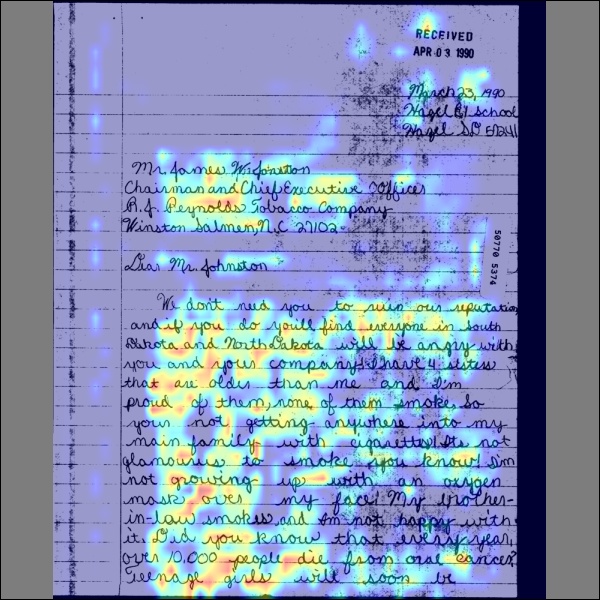 RECEIVED
APR 03 1990
March 23, 1990
Hazel Cy School
Hazel SD 57241
Mr. James W. Johnston
Chairman and Chief Executive Officer
R.J. Reynolds Tobacco Company
Winston Salmen, N.C 27102
50770 5374
Dear Mr. Johnston
We dont need you to ruin our reputation
and if you do you'll find everyone in South
Dakota and North Dakota will be angry with
you and your company! I have 4 sisters
that are older than me and I'm
proud of them, none of them smoke. So
your not getting anywhere into my
main family with cigarettes! Its not
glamourus to smoke you know! I'm
not growing up with an oxygen
mask over my face! My brother-
in-law smokes, and Im not happy with
it. Did you know that every year,
over 10,000 people die from oral cancer?
Teenage girls will soon be